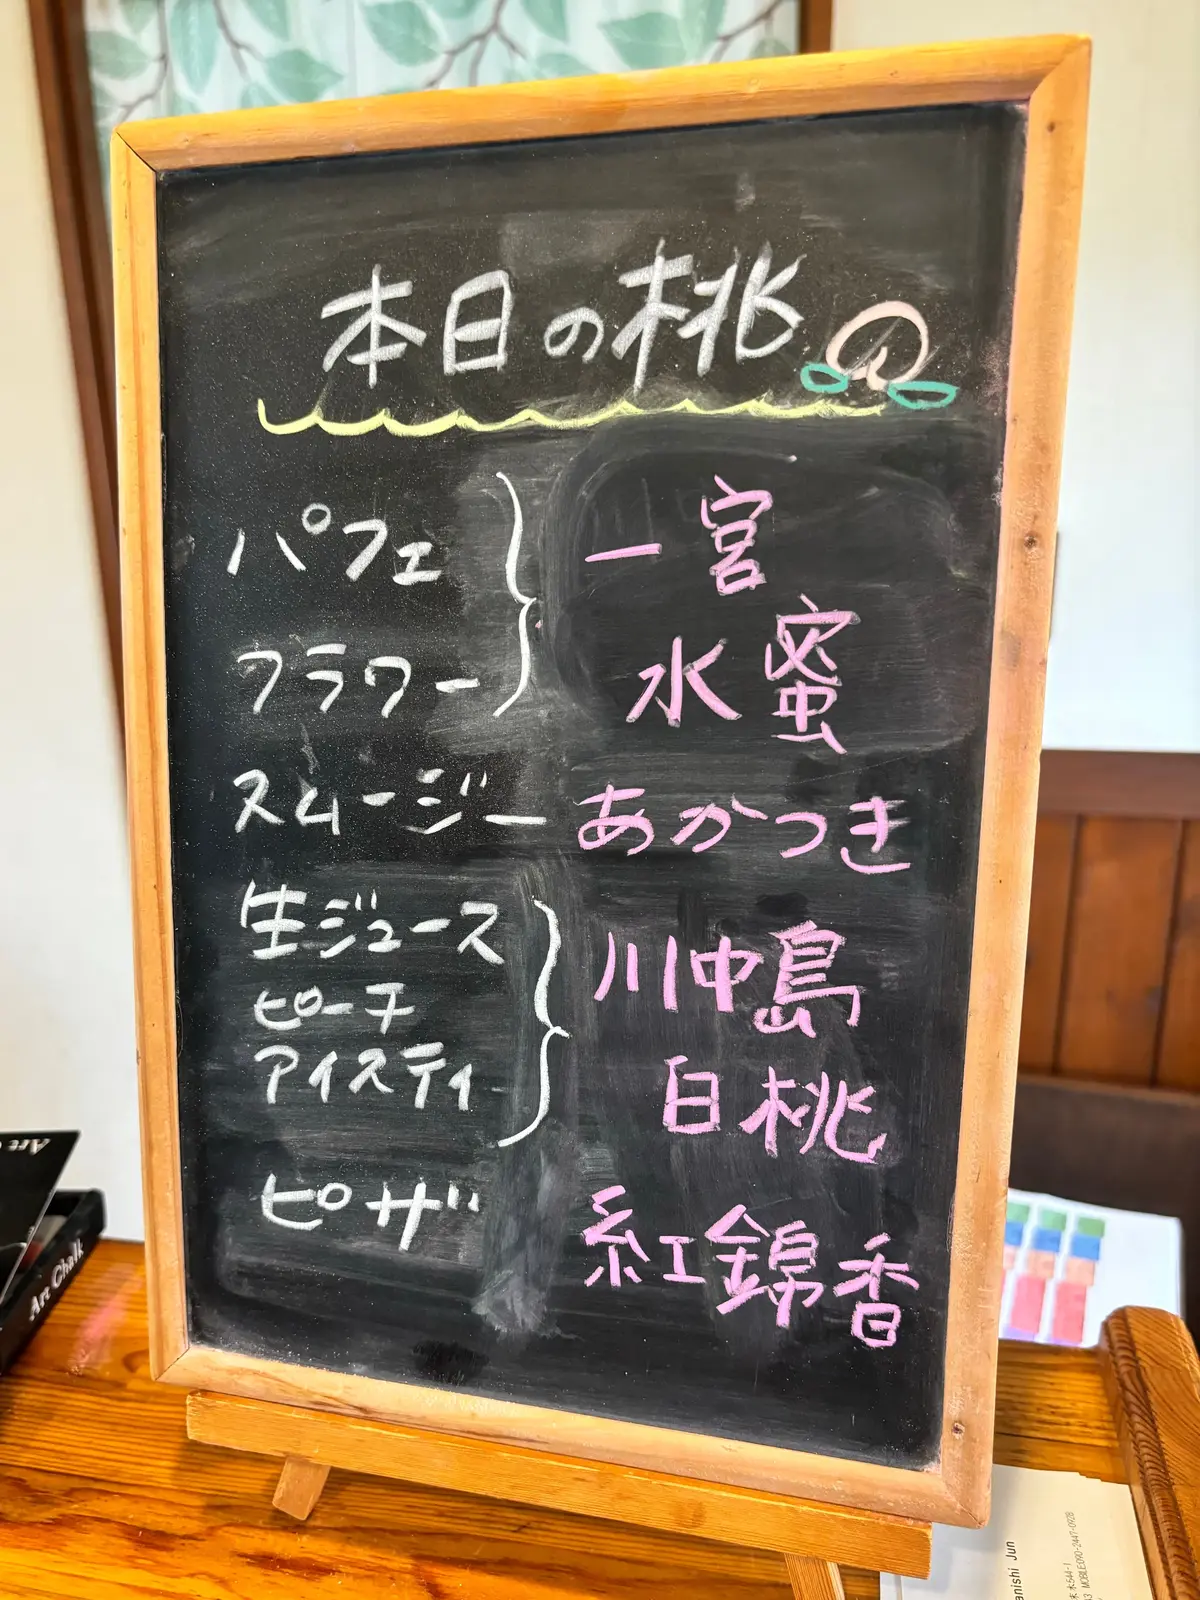 本日の桃
パフェ
フラワー
一宮
水蜜
スムージー あかつき
生ジュース
ピーチ
アイスティ
川中島
白桃
ピザ
紅錦香
Art Chalk
Art
anishi Jun
MOBILE:090-2447-0928